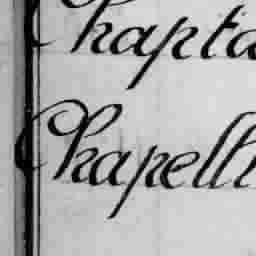 Chapta
Chapell